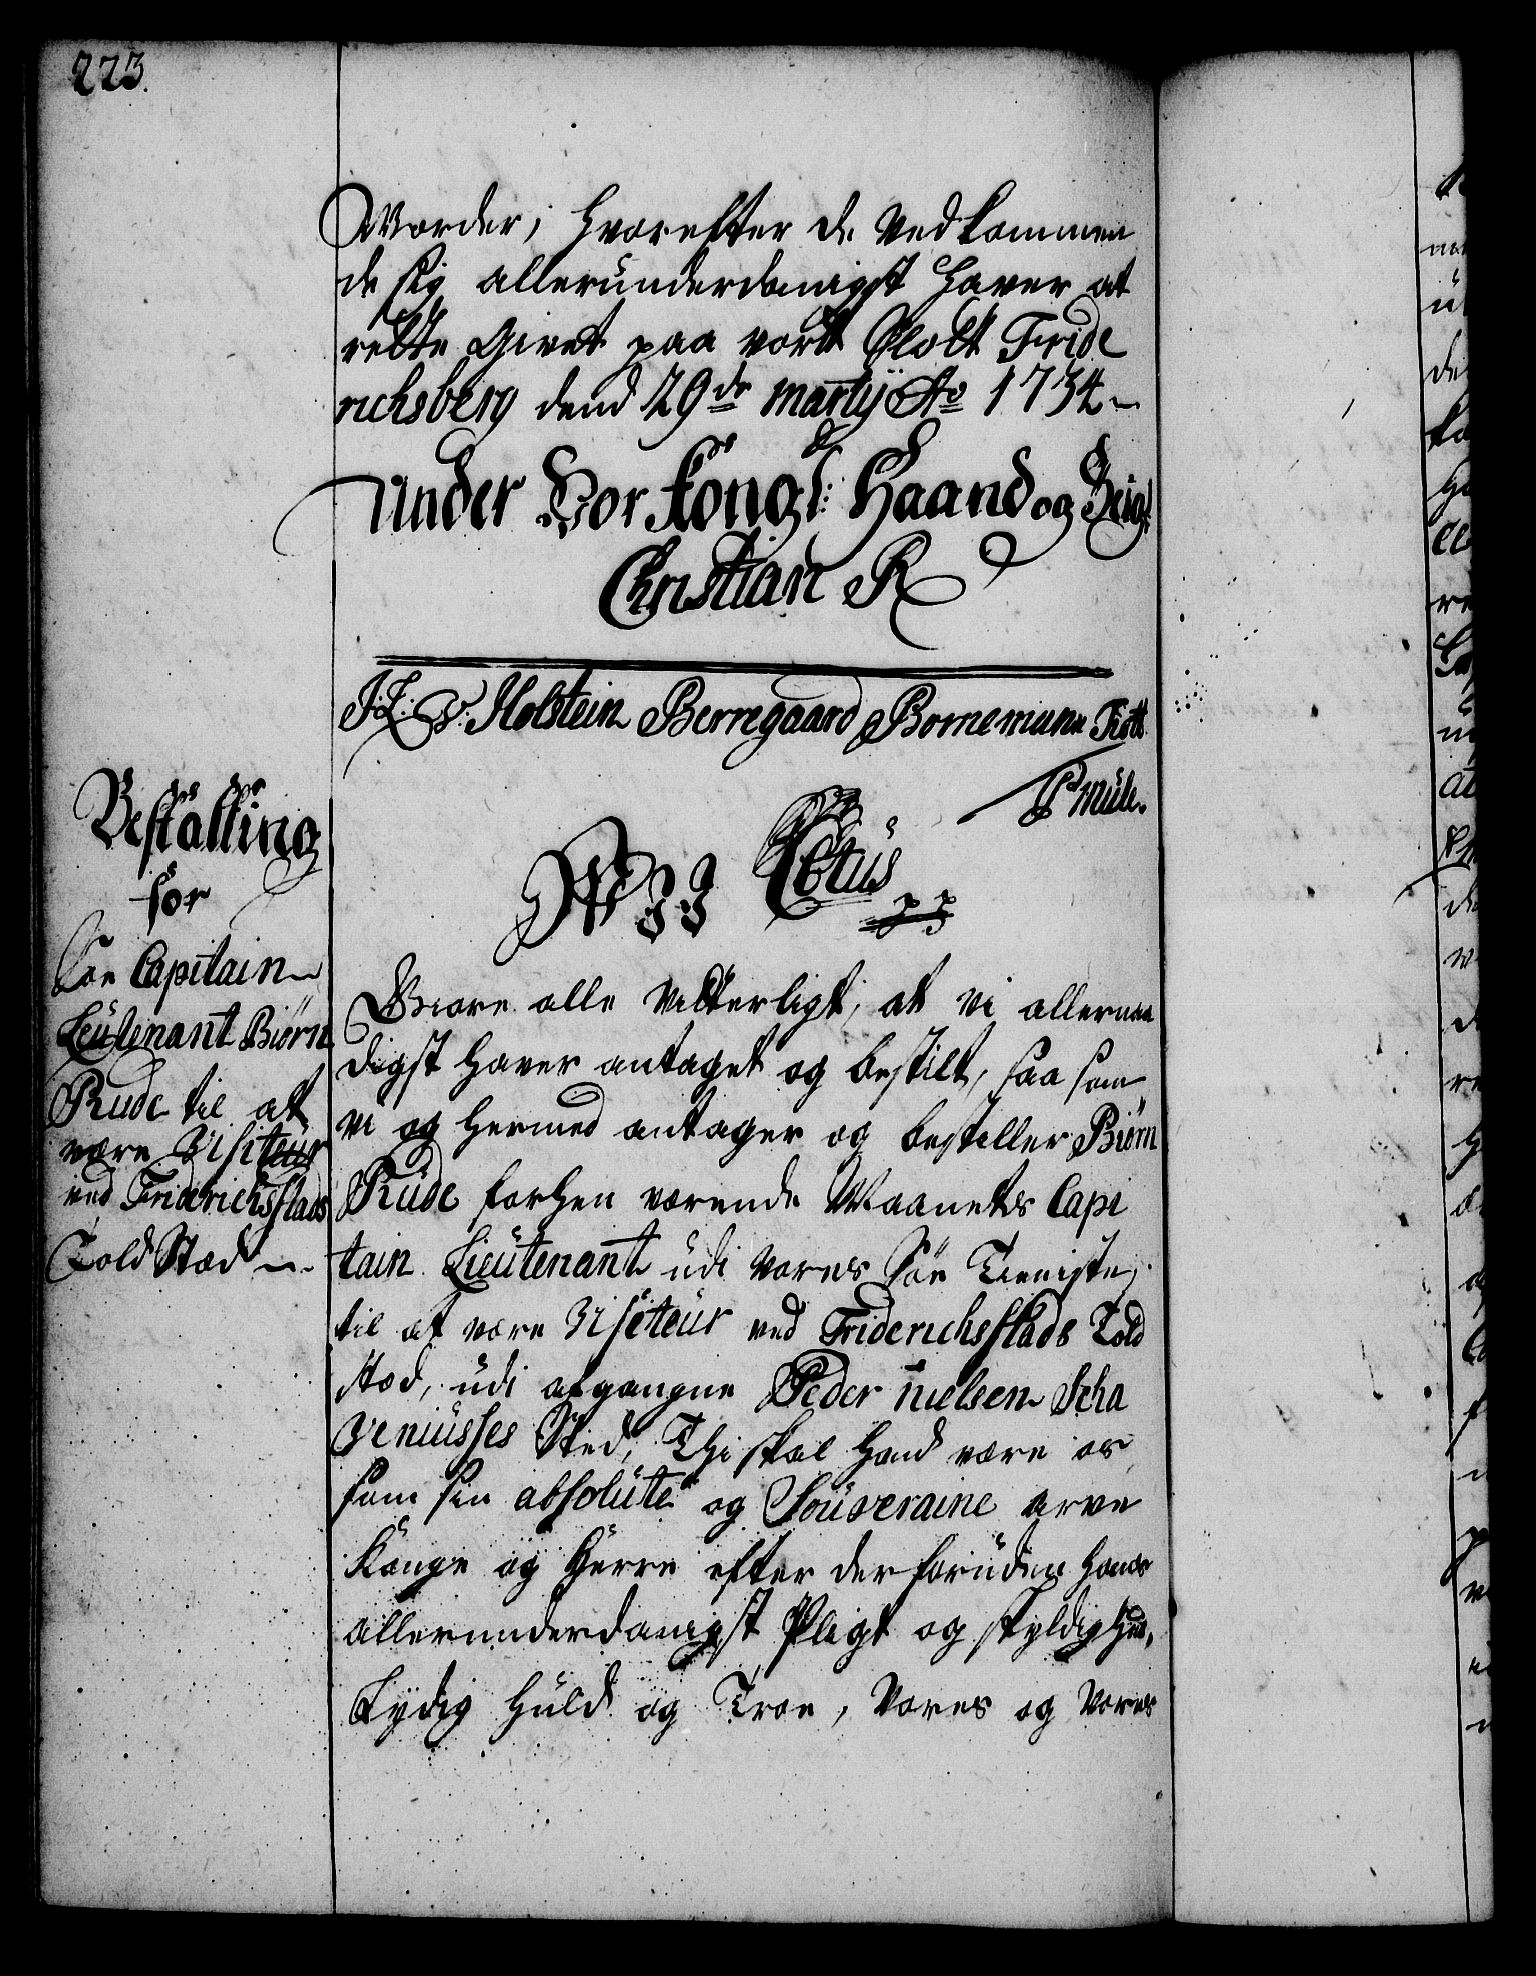 223.
Worder; hvorefter de Vedkommen
de sig allerunderdanigst haver at
rette Givet paa vort Slott Fride
richsberg dend 29de Martij Ao 1734
Under Vor Kongl: Haand og Zeigl
Christian R
J: L: V: Holstein Berregaard Bornemann
P Müle.
Bestalling
for
Søe Capitain
Leutenant Biørn
Rude til at
være Visiteur
ved Friderichsstads
Told Stæd
Totus pp
Giøre alle Vitterligt, at vi allernaa
digst haver antaget og bestilt, saa som
vi og hermed antager og bestiller Biørn
Rude forhen værende Maanets Capi
tain Lieutenant udi Vores Søe Tieniste,
til at være Visiteur ved Friderichsstads Told
stæd, udi afgangne Peder Nielsen Scha
veniusses Sted, Thi skal hand være os
som sin absolute og Souveraine arve
Konge og Herre efter der foruden hans
allerunderdanigst Pligt og skyldighed,
Lydig Huld og Troe, Vores og Vores